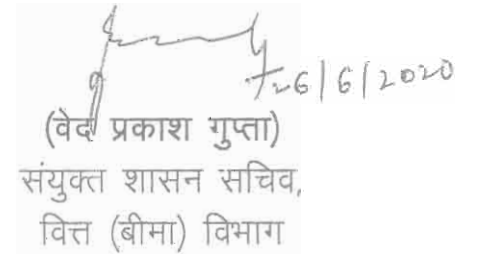 26/6/2020
(वेद प्रकाश गुप्ता)
संयुक्त शासन सचिव,
वित्त (बीमा) विभाग